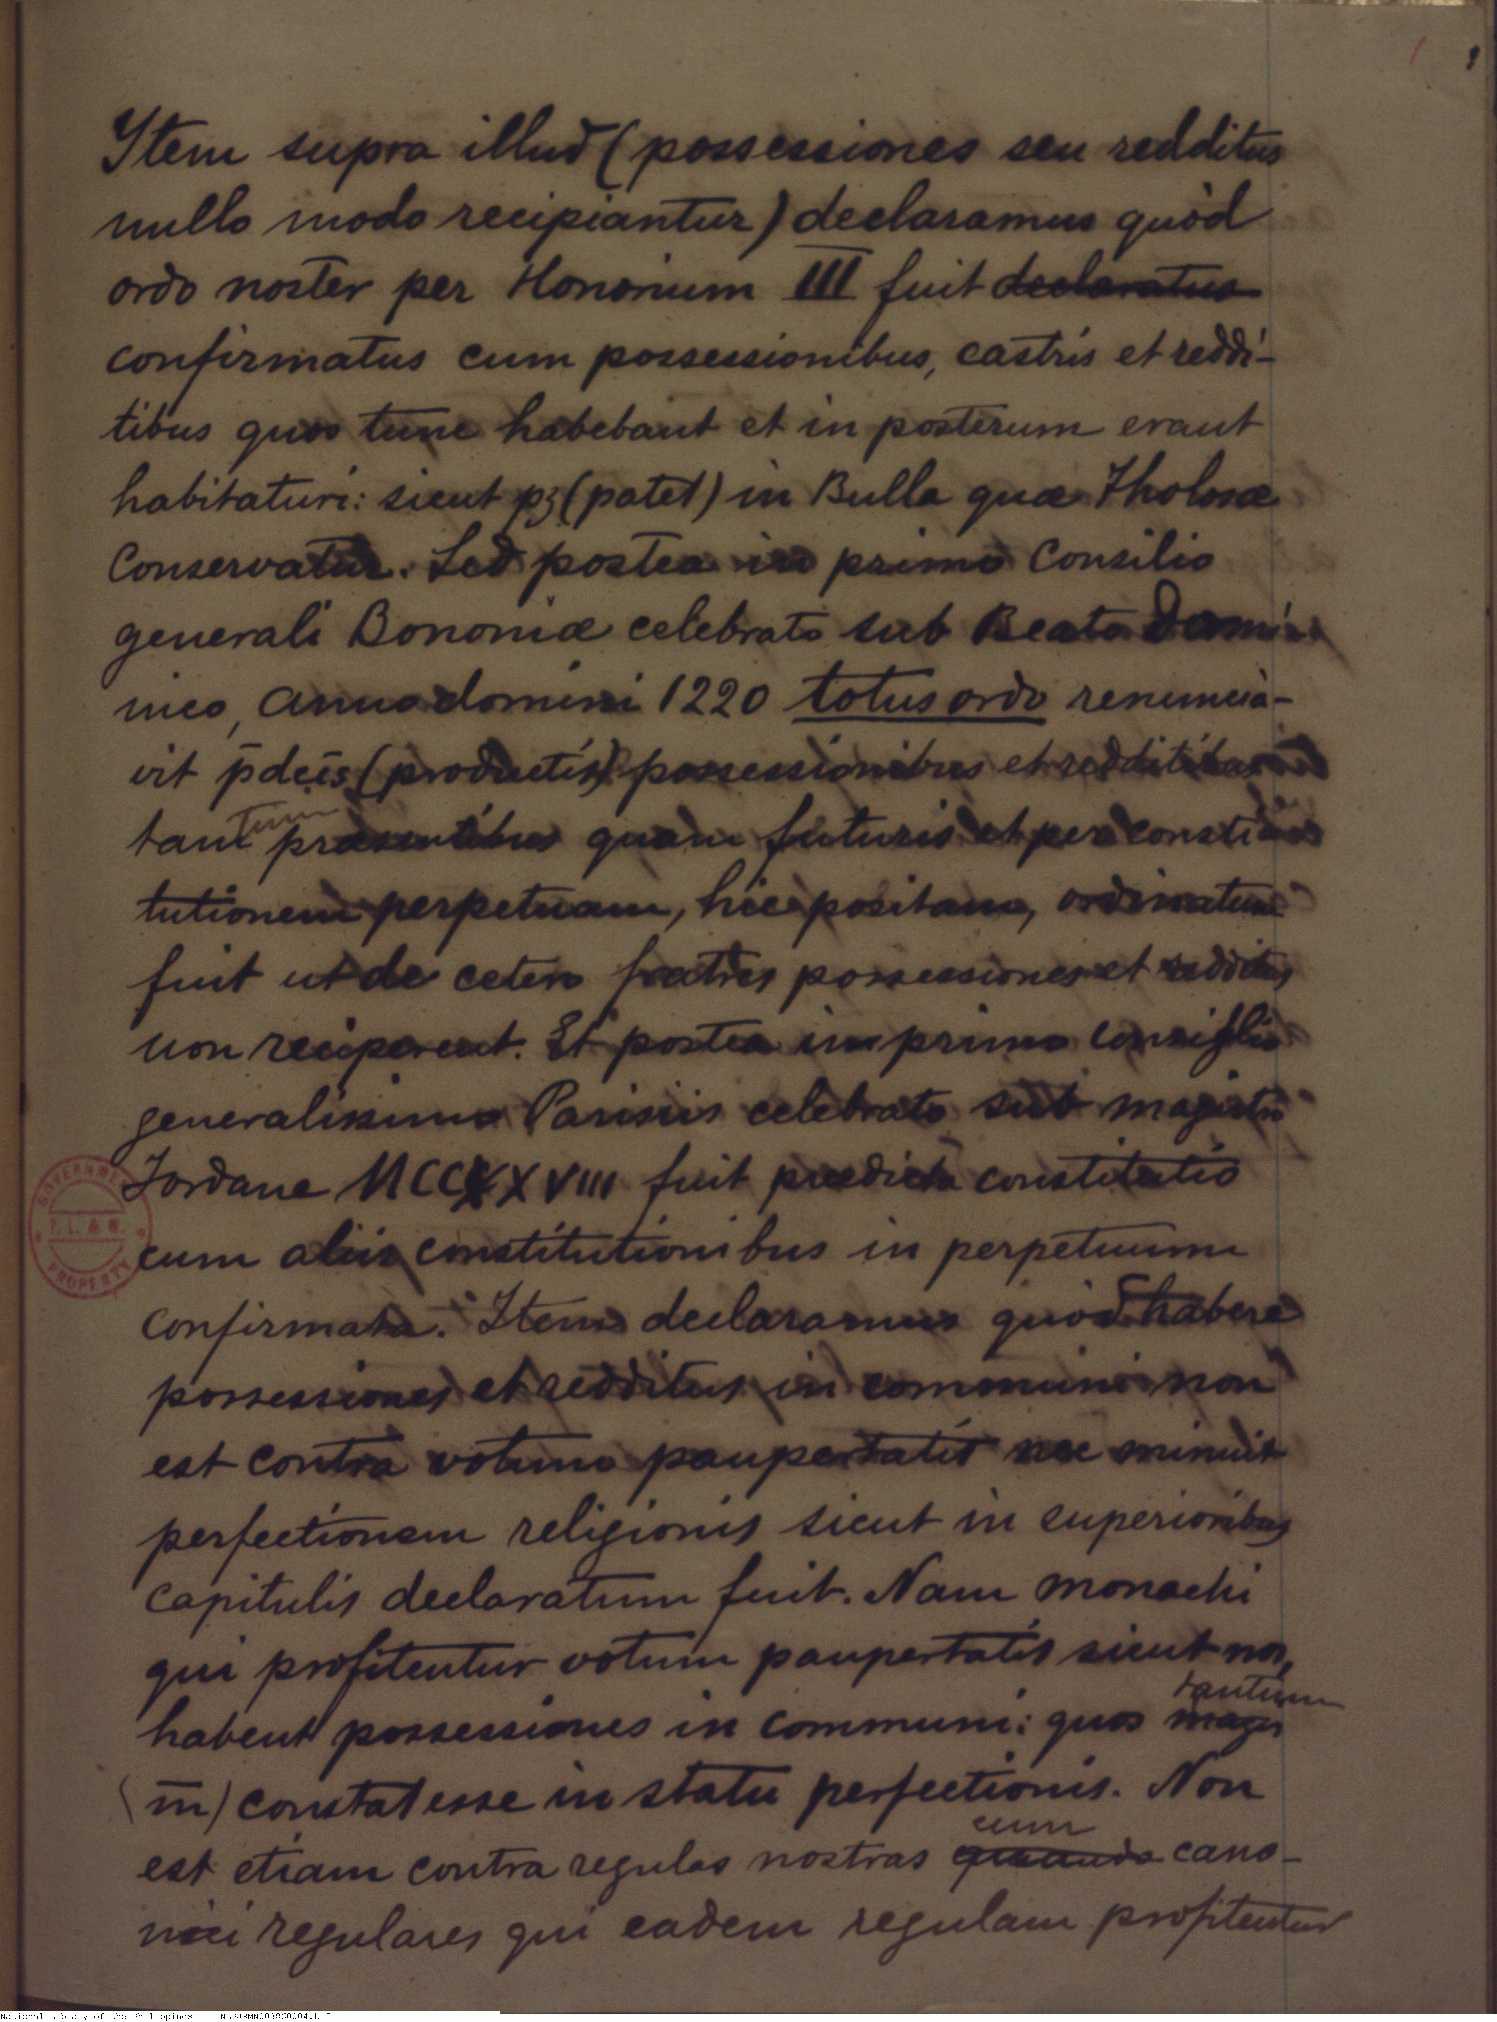 Item supra illud (possessiones seu redditus
nullo modo recipiantur) declaramus quòd
ordo noster per Honorium III fuit declaratus
confirmatus cum possessionibus, castris et reddi-
tibus quos tunc habebant et in posterum erant
habituri: sicut pz (patet) in Bulla quæ Tholosæ
Conservatur. Sed postea in primo Consilio
generali Bononiæ celebrato sub Beato Domi-
nico, anno domini 1220 totus ordo renuncia-
vit p̄dcīs (productis) possessionibus et redditibus
tam tum præsentibus quam futuris et per consti-
tutionem perpetuam, hic positam, ordinatum
fuit ut de cetero fratres possessiones et redditus
non reciperent. Et postea in primo consiglio
generalissimo Parisiis celebrato sub magistro
Jordane MCCXXVIII fuit prædicta constitutio
cum aliis constitutionibus in perpetuum
confirmata. Item declaramus quòd habere
possessiones et redditus in communi non
est contra votum paupertatis nec minuit
perfectionem religionis sicut in superioribus
capitulis declaratum fuit. Nam monachi
qui profitentur votum paupertatis sicut nos,
tantum
habent possessiones in communi: quos magis
(m̄) constat esse in statu perfectionis. Non
cum
est etiam contra regulas nostras quando cano-
nici regulares qui eadem regulam profitentur
GOVERNMENT
P. L. & M.
PROPERTY
National Library of the Philippines